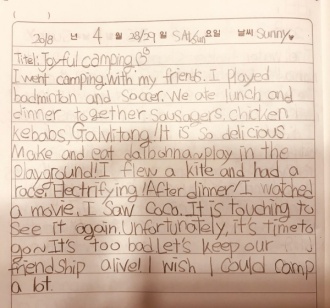 ( )
2018 년 4 월 28/29 일 SAt/Sun 요일 날씨 Sunny
Titel: Joyful camping
I went camping with my friends. I played
badminton and soccer. We ate lunch and
dinner together sausagers, chicken
kebabs, Galvitong! It is so delicious
Make and eat dalgonna~play in the
playground! I flew a kite and had a
race. Electrifying! After dinner! I watched
a movie. I saw Coco. It is touching to
see it again. Unfortunately, it's time to
go~ It's too bad Let's keep our
friendship alive! I wish I could camp
a lot.